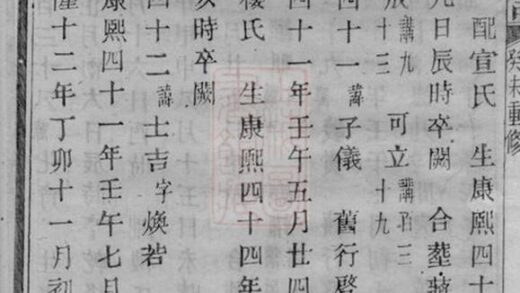 癸未重修
配宣氏 生康熙四十
日辰時卒闕 合塟蔣
講九十三 可立講百三十九
四十一 諱子儀 舊行啓
四十一年壬午五月廿四
氏 生康熙四十四年
亥時卒闕
四十二 諱士吉字煥若
康熙四十一年壬午七月
十二年丁卯十一月初